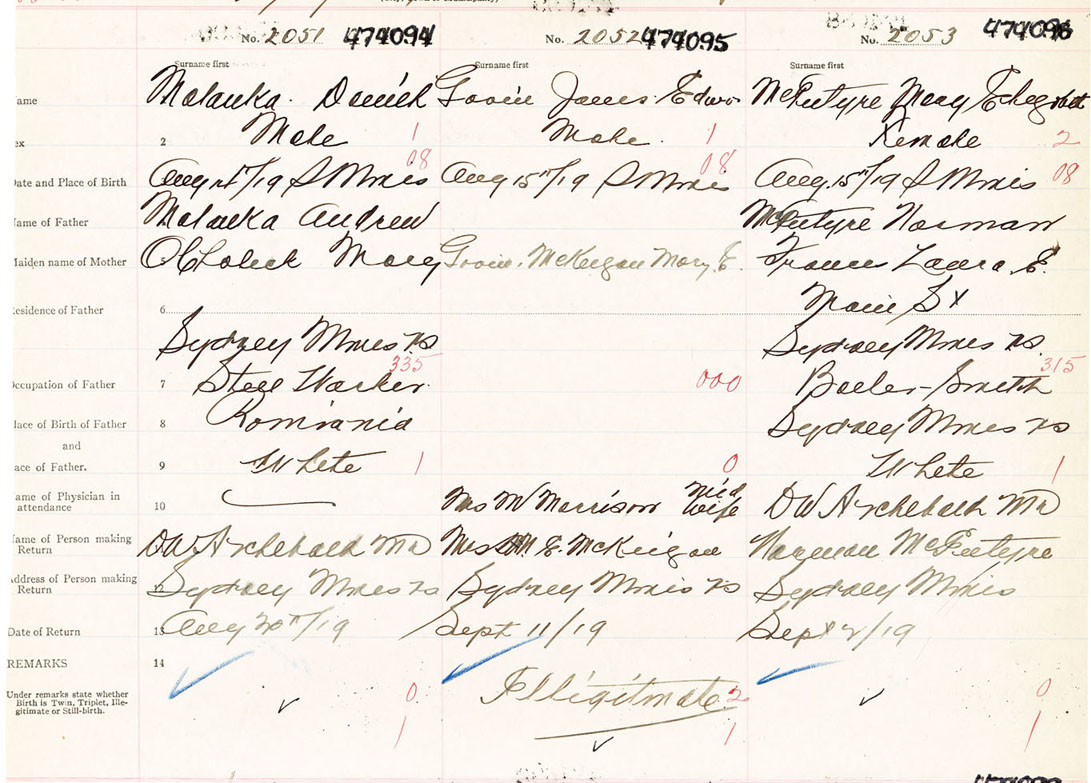 No. 2051 474094 No. 2052 474095 No. 2053 474096
Surname first Surname first Surname first
ame Malanka Daniel Govin James Edwo McIntyre Mary Elizabeth
ex 2 Male 1 Male 1 Female 2
08 08 08
Date and Place of Birth Aug /19 S Mines Aug 15th/19 S Mines Aug 15th/19 S Mines
Name of Father Malanka Andrew McIntyre Norman
Maiden name of Mother Mary McKeigan Mary E. Laura E.
Main St
Residence of Father 6
Sydney Mines NS Sydney Mines NS
335 315
Occupation of Father 7 Steel Worker 000 Boiler-Smith
Place of Birth of Father 8 Romania Sydney Mines NS
and
ace of Father. 9 White 1 0 White 1
Name of Physician in
attendance 10 Mrs M Morrison Mid wife DW Archibald MD
Name of Person making
Return DW Archibald MD Mrs M. E. McKeigan Norman McIntyre
Address of Person making
Return 12 Sydney Mines NS Sydney Mines NS Sydney Mines
Date of Return 13 Aug 30th/19 Sept 11/19 Sept 2/19
REMARKS 14
Under remarks state whether
Birth is Twin, Triplet, Ille-
gitimate or Still-birth.
0 Illigitmate 2 0
1 1 1